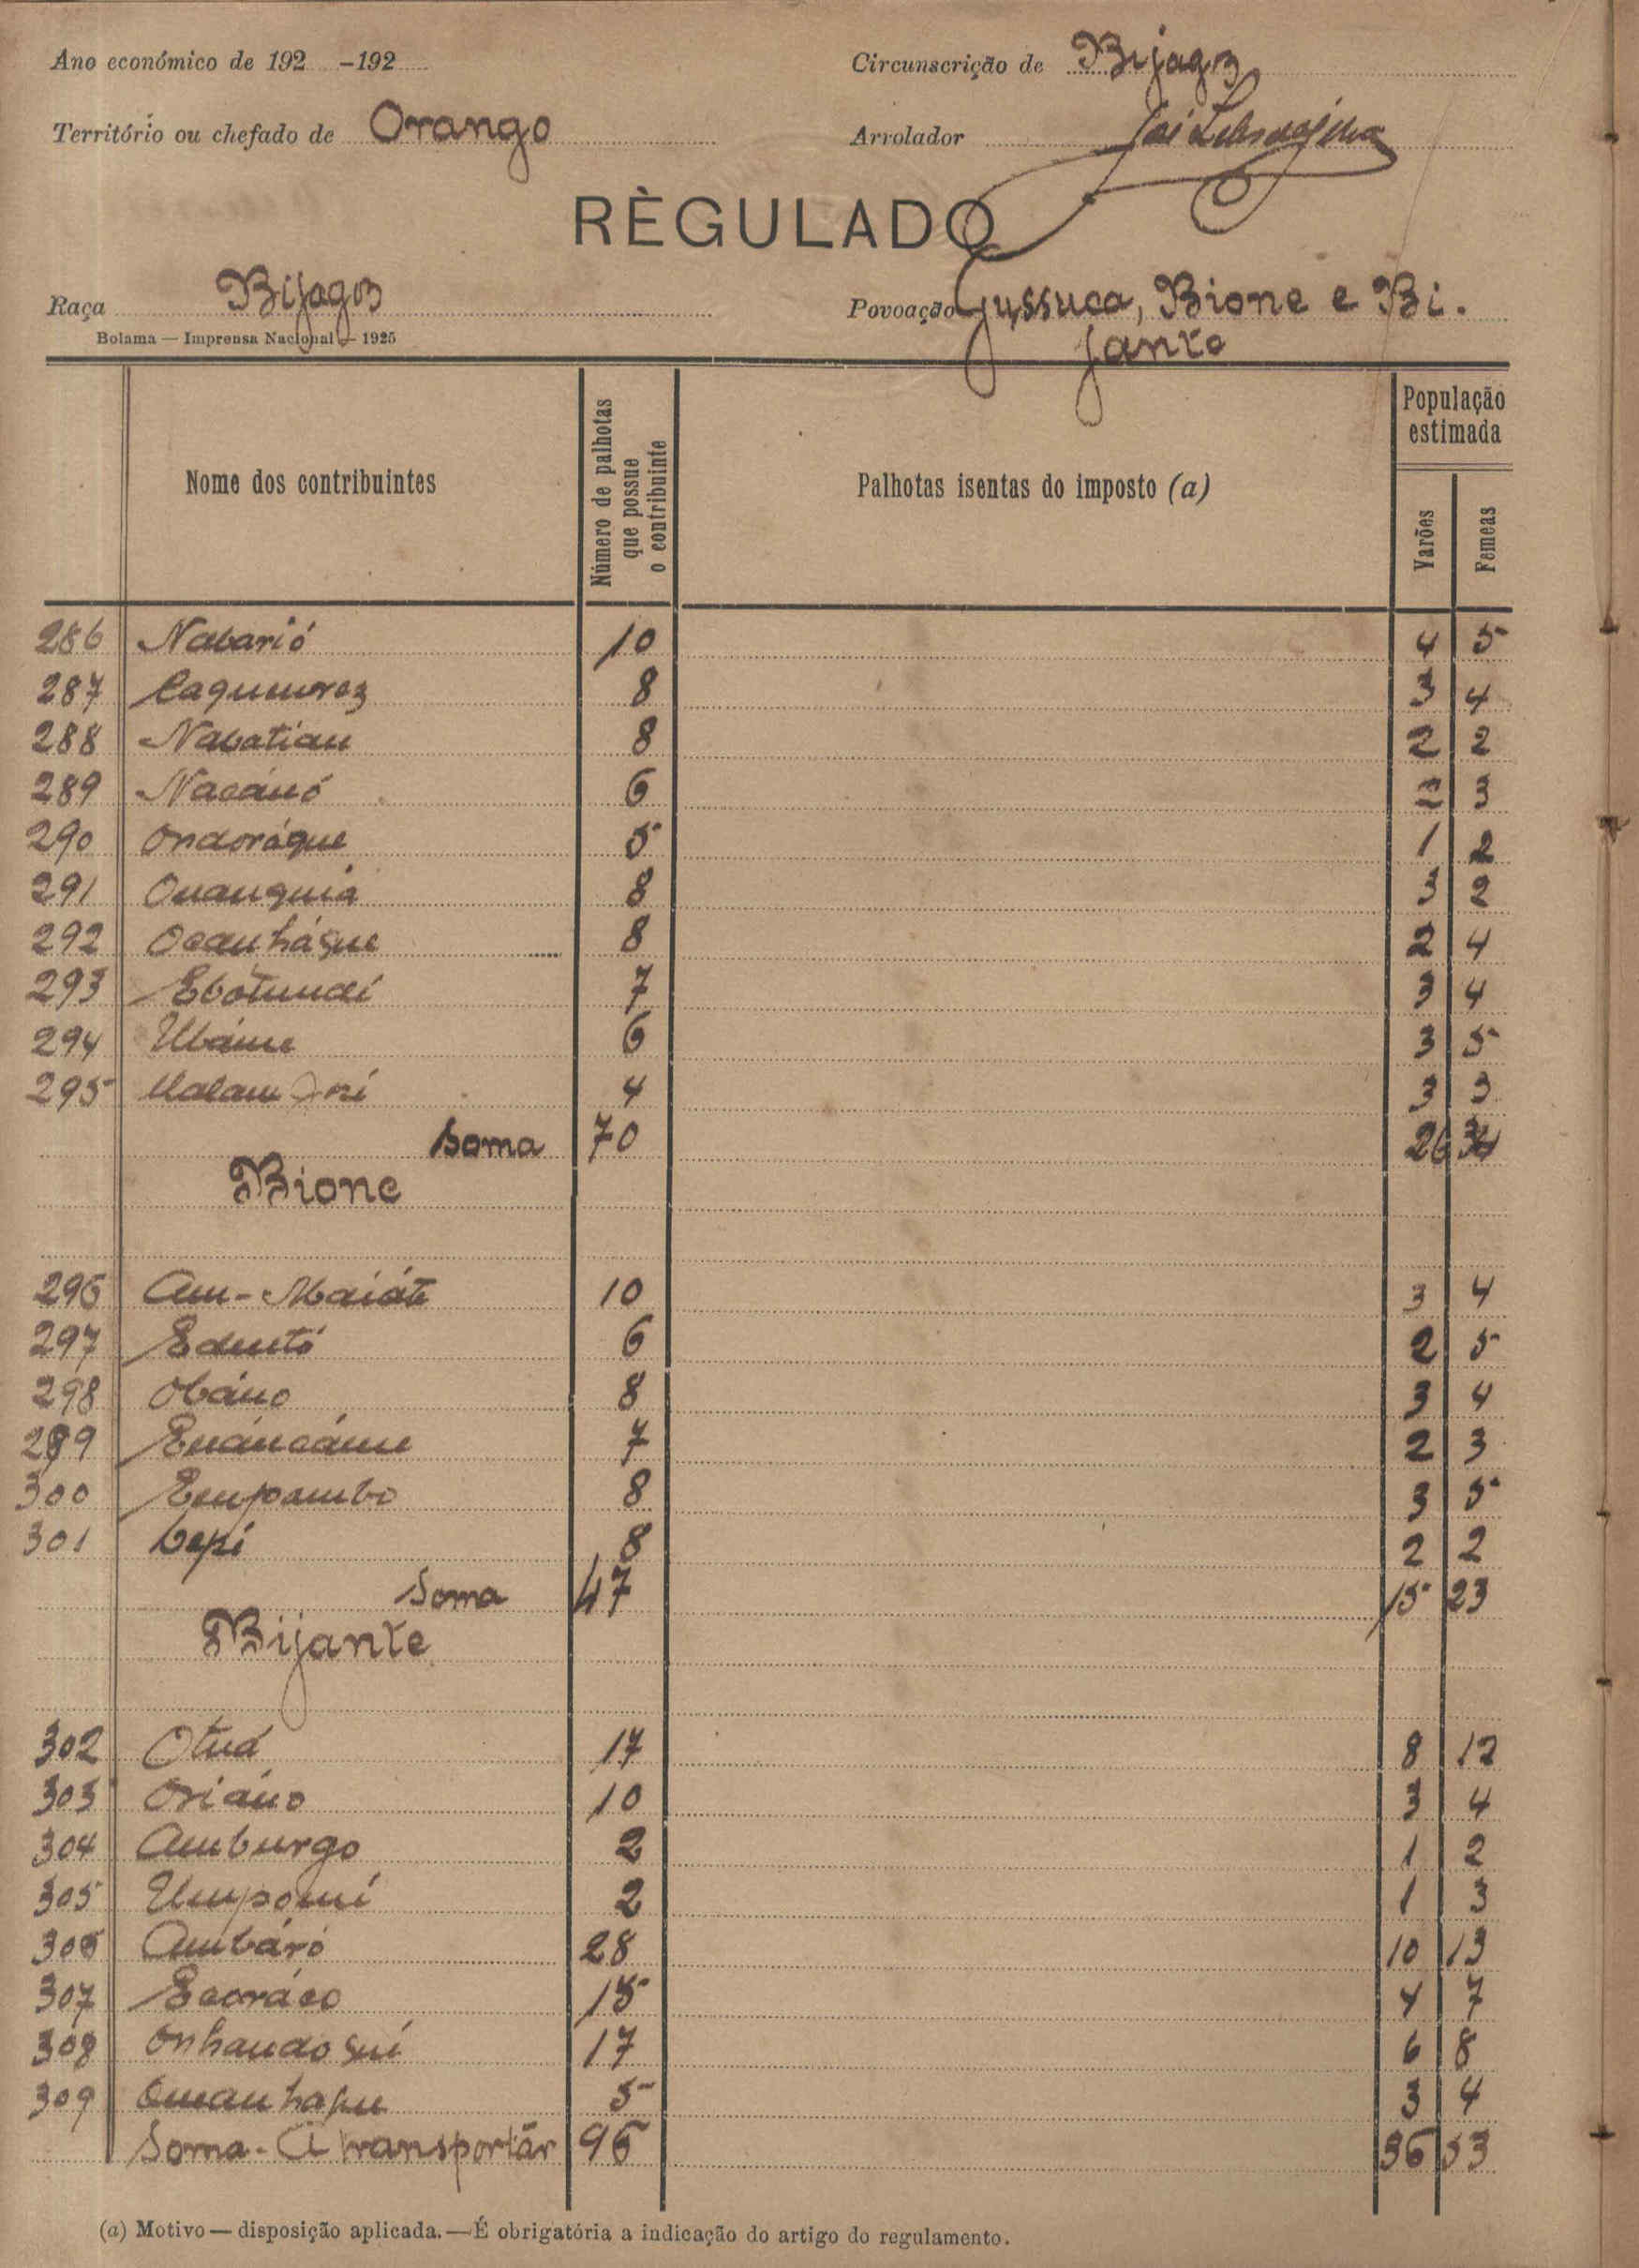 Ano económico de 192 -192
Circunscrição de Bijagoz
Território ou chefado de Orango
Arrolador
RÈGULADO
Raça Bijagoz
Povoação Gussuca, Bione e Bi-
jante
Bolama — Imprensa Nacional — 1925
Nome dos contribuintes
Número de palhotas que possue o contribuinte
Palhotas isentas do imposto (a)
População estimada
Varões
Femeas
286 Nabarió 10 4 5
287 8 3 4
288 Nabatiam 8 2 2
289 Nacánó 6 2 3
290 Ondoráque 5 1 2
291 Ouanquiá 8 3 2
292 Ocanháque 8 2 4
293 Ebotundi 7 3 4
294 Ubáne 6 3 5
295 4 3 3
Soma 70 26 34
Bione
296 Am-Maiáte 10 3 4
297 Eduntó 6 2 5
298 Obáno 8 3 4
299 7 2 3
300 Empambo 8 3 5
301 Depi 8 2 2
Soma 47 15 23
Bijante
302 Otuá 17 8 12
303 Oriáno 10 3 4
304 Amburgo 2 1 2
305 Umpomi 2 1 3
306 Ambáró 28 10 13
307 Ecoráco 15 4 7
308 Onhandogui 17 6 8
309 5 3 4
Soma-A transportár 96 36 53
(a) Motivo — disposição aplicada. — É obrigatória a indicação do artigo do regulamento.